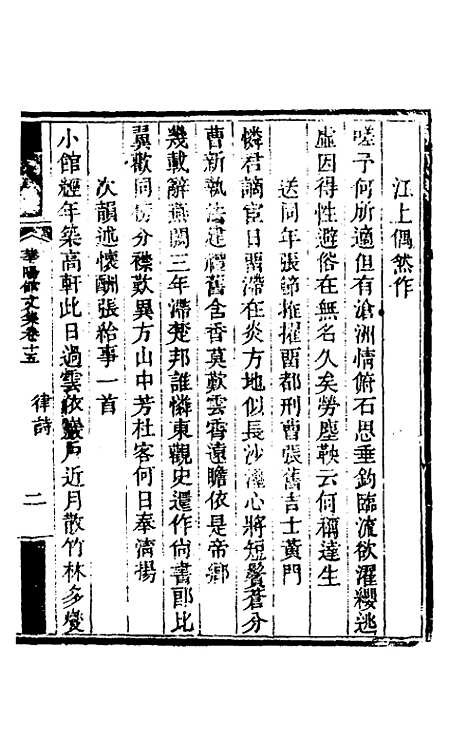 江上偶然作
嗟子何所適但有滄洲情俯石思垂釣臨流欲濯纓逃
虛因得性避俗在無名久矣勞塵鞅云何稱達生
送同年張節推擢畱都刑曹張舊吉士黃門
憐君謫宦日畱滯在炎方地似長沙濕心將短鬢蒼分
曹新執法建禮舊含香莫歎雲霄遠瞻依是帝鄉
幾載辭燕闕三年滯楚邦誰憐東觀史還作尙書郎比
翼歡同 分襟歎異方山中芳杜客何日奉淸揚
次韻述懷酬張給事一首
小館經年築高軒此日過雲依巖戶近月散竹林多燮
華陽館文集卷十五
律詩
二